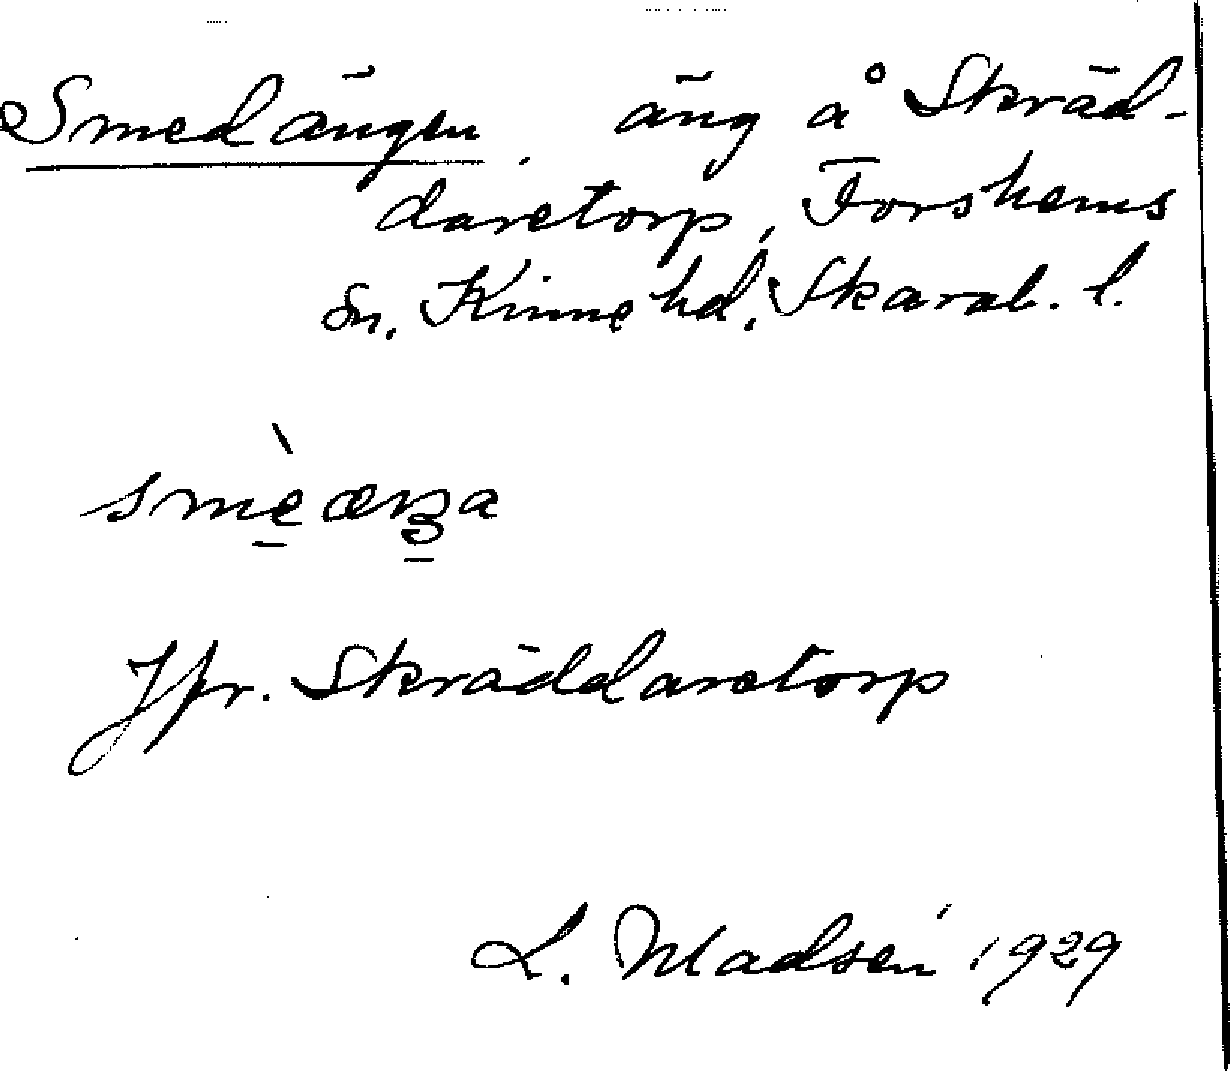 Smedängen, äng å Skräd-
daretorp, Forshems
sn, Kinne hd, Skarab. l.
smèæŋa
Jfr. Skräddaretorp
L. Madsén 1929